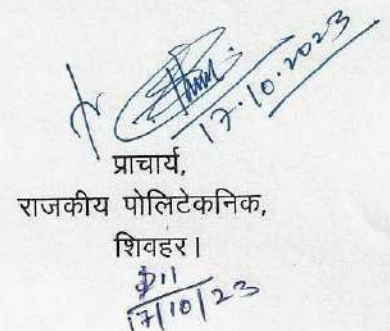 17.10.2023
प्राचार्य,
राजकीय पोलिटेकनिक,
शिवहर।
17/10/23